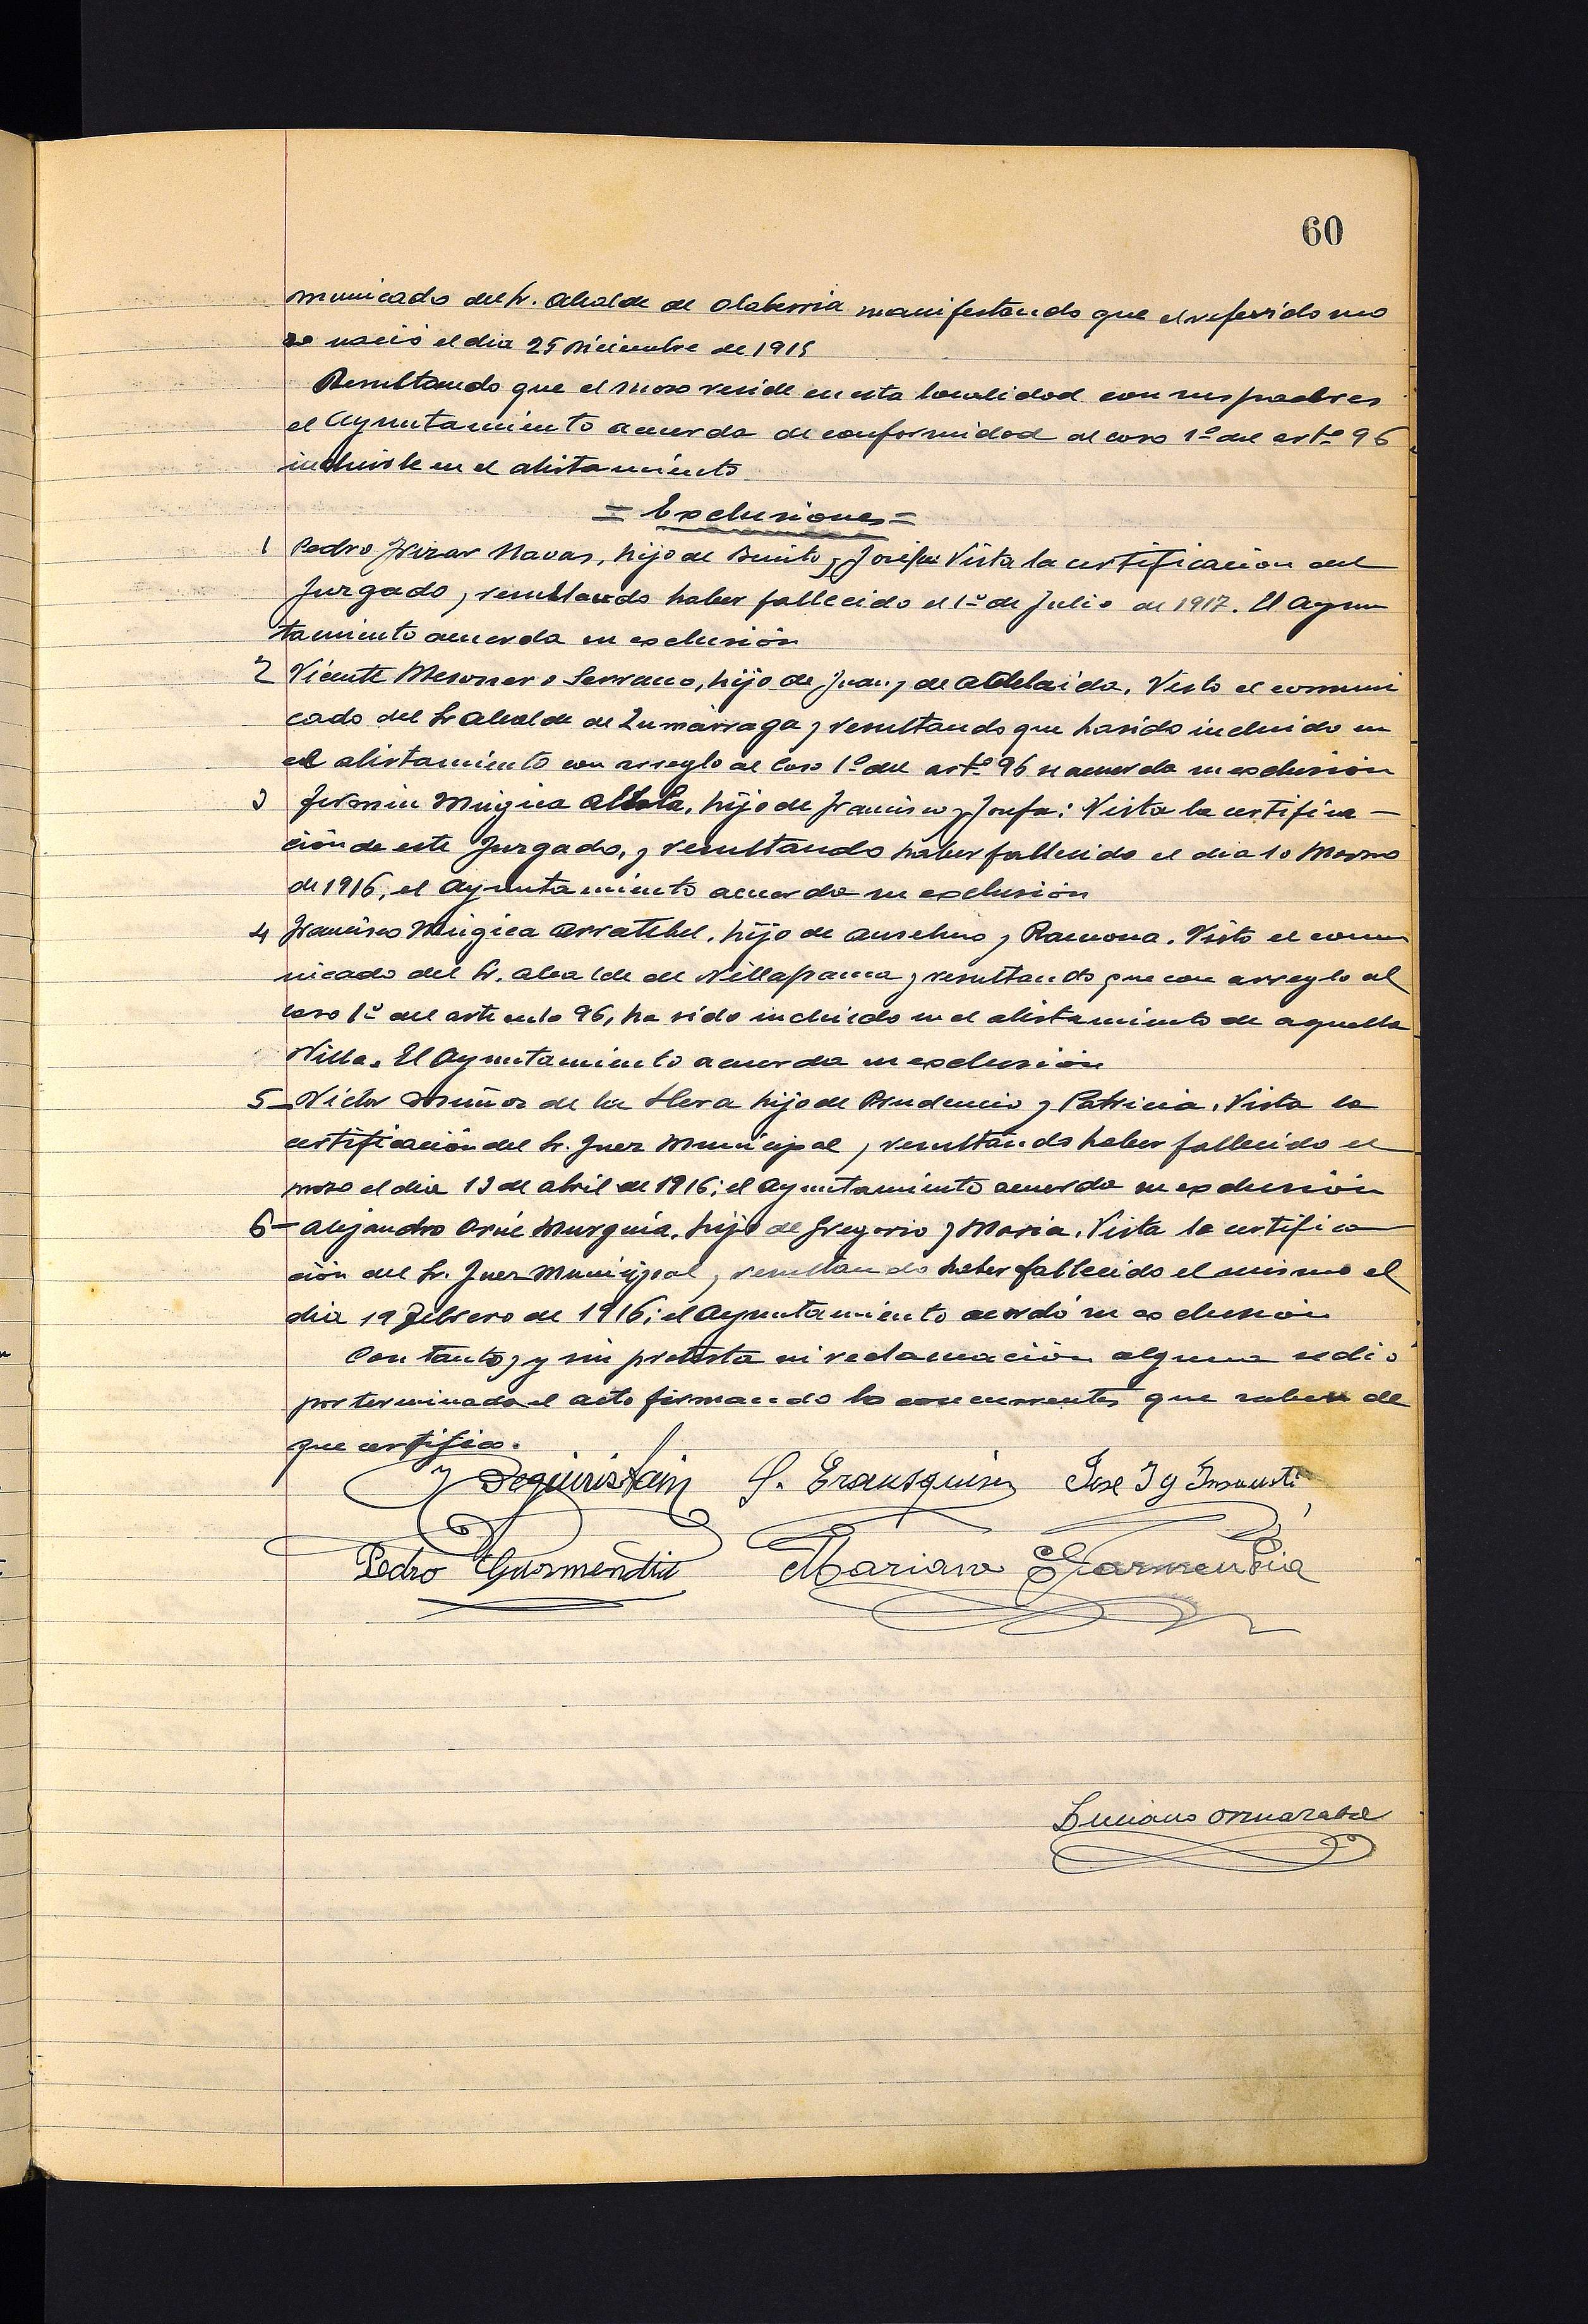 60
municado del Sr. Alcalde de Olaberria manifestando que el referido mo
zo nació el dia 25 Diciembre de 1915
Resultando que el mozo reside en esta localidad con sus padres
el Ayuntamiento acuerda de conformidad al caso 1º del artº 96
incluirle en el alistamiento
= Exclusiones =
1 Pedro Navas, hijo de Benito y Josefa Vista la certificacion del
Juzgado, resultando haber fallecido el 1º de Julio de 1917. El Ayun
tamiento acuerda su exclusión
2 Vicente Mesonero Serrano, hijo de Juan y de Adelaida. Visto el comuni
cado del Sr Alcalde de Zumárraga y resultando que ha sido incluido en
el alistamiento con arreglo al Caso 1º del artº 96 se acuerda su exclusion
3 Fermin Mugica Altola, hijo de Francisco y Josefa: Vista la certifica –
ción de este Juzgado, y resultando haber fallecido el dia 10 Marzo
de 1916, el Ayuntamiento acuerda su exclusión
4 Francisco Mugica Arratibel, hijo de Anselmo y Ramona. Visto el comu
nicado del Sr. Alcalde de Villafranca y resultando que con arreglo al
Caso 1º del articulo 96, ha sido incluido en el alistamiento de aquella
Villa. El Ayuntamiento acuerda su exclusión
5– Victor Muñoz de la Hera hijo de Prudencio y Patricia. Vista la
certificación del Sr. Juez Municipal y resultando haber fallecido el
mozo el dia 13 de abril de 1916; el Ayuntamiento acuerda su exclusión
6– Alejandro Murguia, hijo de Gregorio y Maria. Vista la certifica
ción del Sr. Juez Municipal, resultando haber fallecido el mismo el
dia 19 Febrero de 1916; el Ayuntamiento acordó su exclusion
Con tanto, y sin protesta ni reclamación alguna se dió
por terminada el acto firmando los concurrentes que saben de
que certifico.
Y Beguiristain S. Erausquin Jose Ig Insausti
Pedro Garmendia Mariano Garmendia
Luciano